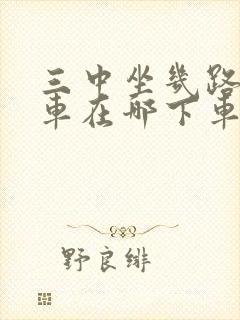 三中坐几路
車在哪下車
野良绯